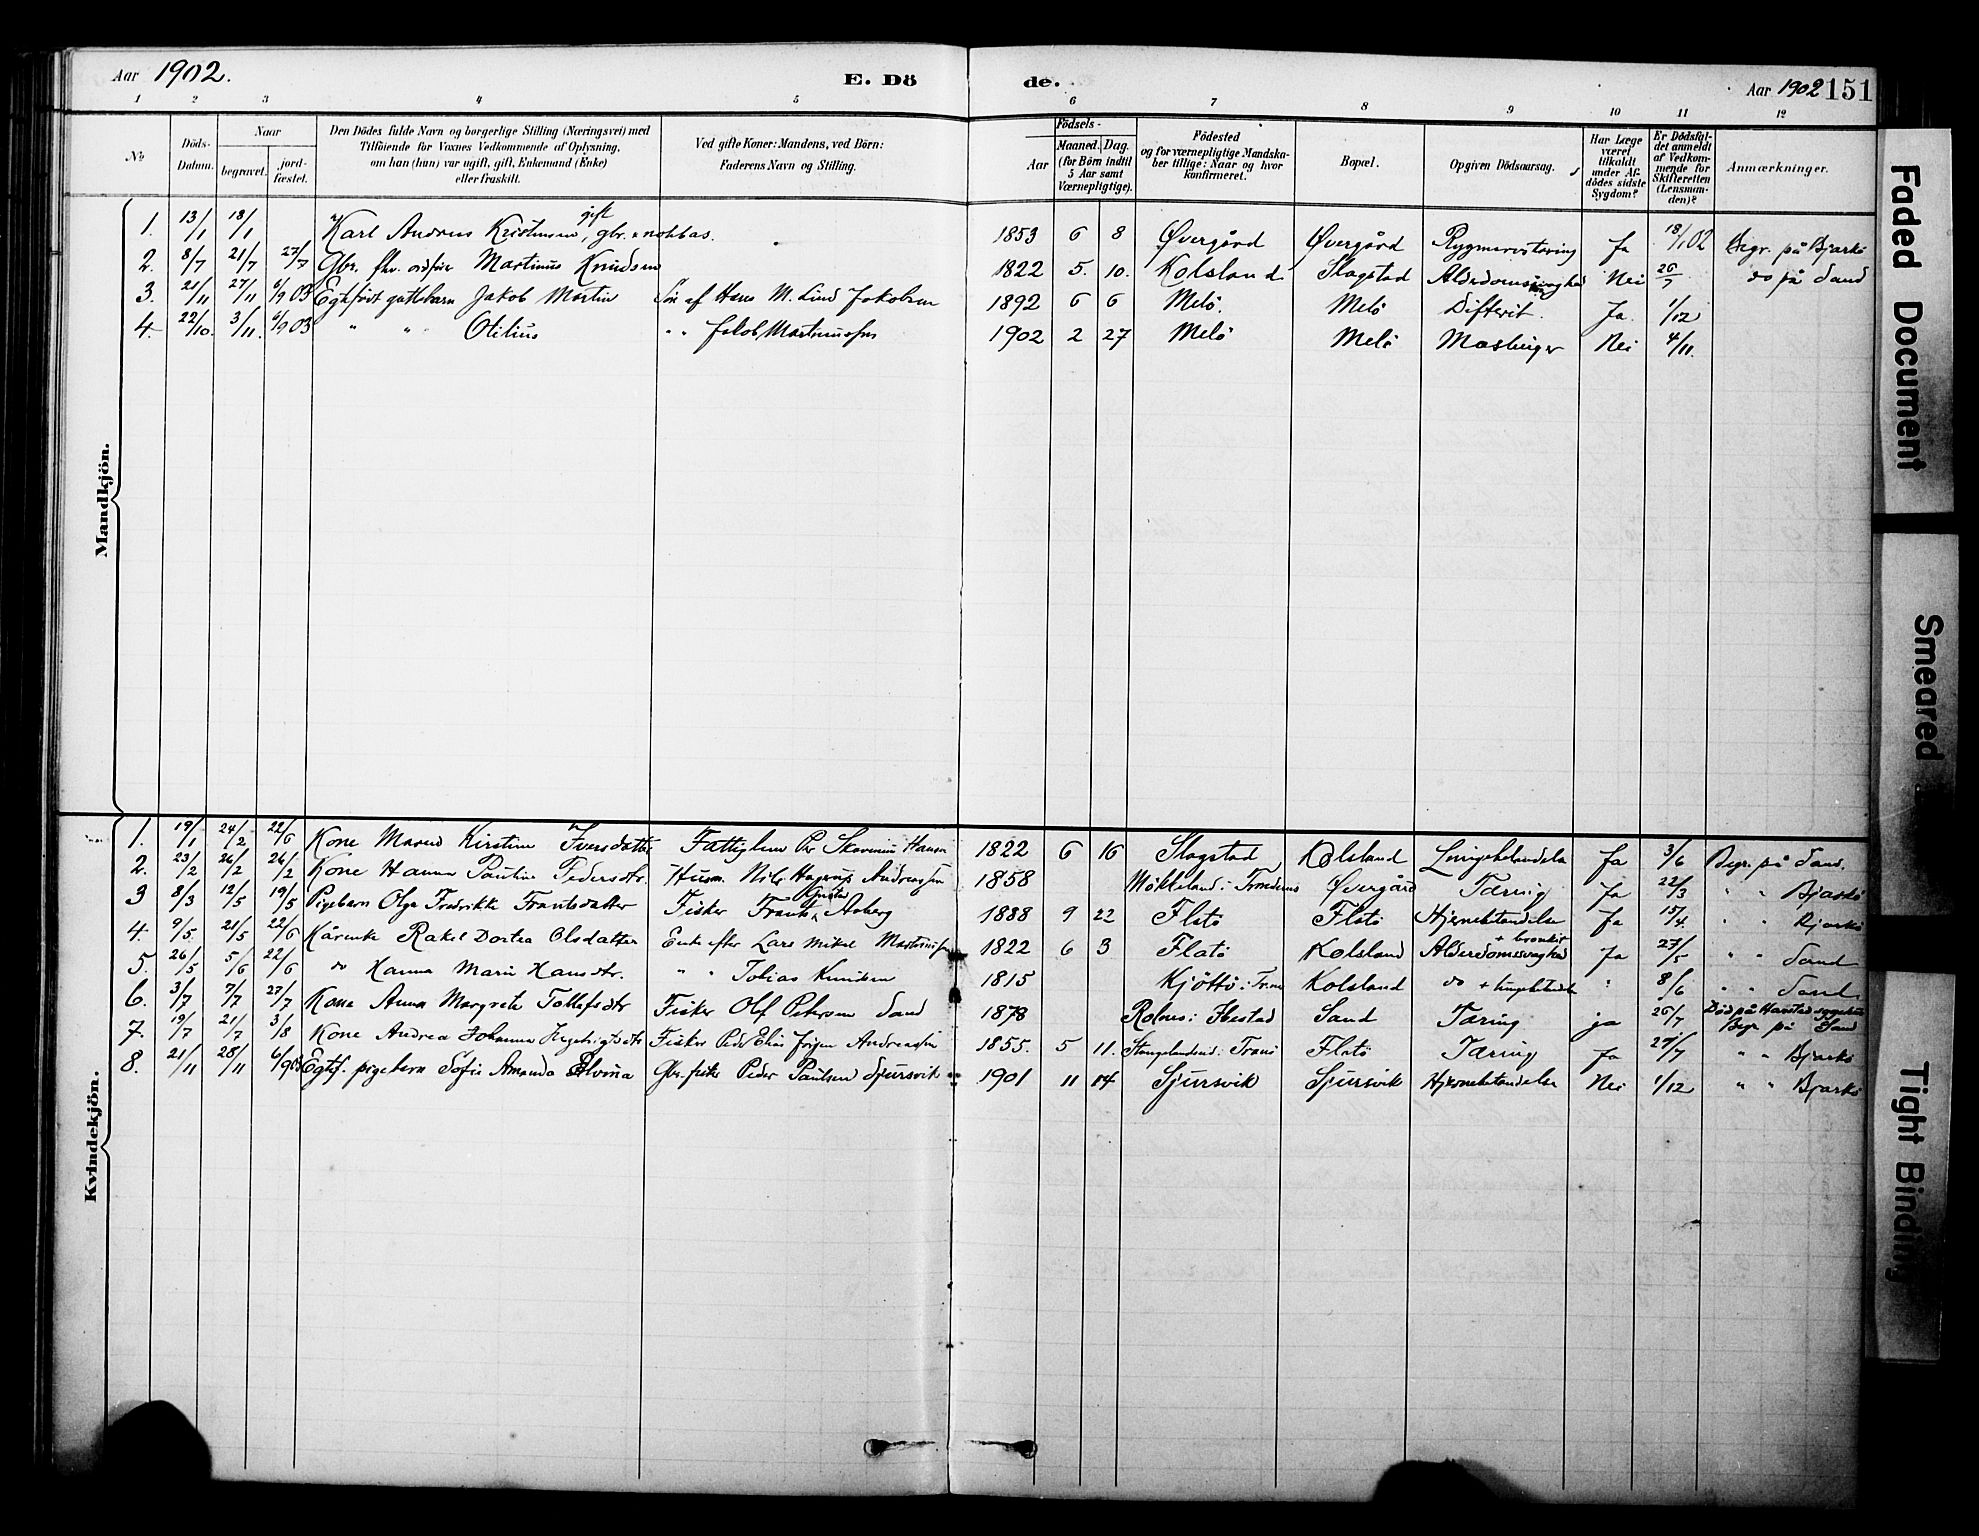 Aar 1902. E. Dö de. Aar 1902 151
1 2 3 4 5 6 7 8 9 10 11 12
No
Döds-Datum.
Naar
begravet.
jord-fæstet.
Den Dödes fulde Navn og borgerlige Stilling (Næringsvei) med
Tilføiende for Voxnes Vedkommende af Oplysning,
om han (hun) var ugift, gift, Enkemand (Enke)
eller fraskilt.
Ved gifte Koner: Mandens, ved Börn:
Faderens Navn og Stilling.
Födsels-
Aar
Maaned. Dag.
(for Börn indtil
5 Aar samt
Værnepligtige).
Födested
og for værnepligtige Mandska-
ber tillige: Naar og hvor
konfirmeret.
Bopæl.
Opgiven Dödsaarsag.
Har Læge
været
tilkaldt
under Af-
dödes sidste
Sygdom?
Er Dödsfal-
det anmeldt
af Vedkom-
mende for
Skifteretten
(Lensman-
den)?
Anmærkninger.
Mandkjön.
1. 13/1 18/1 Karl Andreas Kristensen, gift gbr. & notebas. 1853 6 8 Øvergård Øvergård Ja 18/1 02 Begr. på Bjarkö
2. 8/7 21/7 27/7 Gbr. fhv. ordfører Martinus Knudsen 1822 5. 10. Kolsland Slagstad Alderdomssvaghed Nei 26/7 do på Sand
3. 21/11 27/11 6/9 03 Egtefödt guttebarn Jakob Martin Sön af Hans M. Lind Jakobsen 1892 6 6 Melö. Melö Difterit. Ja. 1/12
4. 22/10. 3/11. 6/9 03 " " Otilius " " Jakob Martinussen 1902 2 27 Melö Melö Mæslinger Nei 4/11.
Kvindekjön.
1. 19/1 24/2 22/6 Kone Maren Kirstine Iversdatter Fattiglem Per Skavenius Hansen 1822 6 16 Slagstad Kolsland Lungebetændelse Ja 3/6 Begr. på Sand.
2. 23/2 26/2 26/2 Kone Hanna Pauline Pedersdtr. Husm. Nils Hagerup Andreassen 1858 Møkkeland i Trondenes Øvergård Tæring Ja 22/3 " " Bjarkö
3 8/3 12/5 19/5 Pigebarn Olga Fredrikke Frantsdatter Fisker Frants Gustav Aaberg 1888 9 22 Flatö Flatö Hjernebetændelse Ja 15/4. " " Bjarkö
4. 9/5. 21/5 22/6 Kårenke Rakel Dortea Olsdatter Enke efter Lars Mikal Martinussen 1822 6 3 Flatö Kolsland Alderdomssvaghed + bronkit Ja 27/5 " " Sand
5. 26/5 5/6 22/6 do Hanna Marie Hansdtr. " " Tobias Knudsen 1815 Kjöttö i Kolsland do + lungebetændelse " 8/6 " " Sand
6. 3/7 7/7 27/7 Kone Anna Margrete Tollefsdtr Fisker Olaf Petersen Sand 1878 Rolnes i Ibestad Sand Tæring ja 26/7 Död på Harstad sygehus Begr. på Sand
7. 19/7 21/7 3/8 Kone Andrea Johanna Ingebrigtsdtr Fisker Peder Elias Jörgen Andreassen 1855. 5 11. Stangelandsnes i Tranö Flatö Tæring Ja 27/7 " " Bjarkö
8. 21/11 28/11 6/9 03 Egtef. pigebarn Sofie Amanda Elvina Gbr. fisker Peder Paulsen Sjursvik 1901 11 14 Sjursvik Sjursvik Hjernebetændelse Nei 1/12 " " Bjarkö
Faded Document
Smeared
Tight Binding